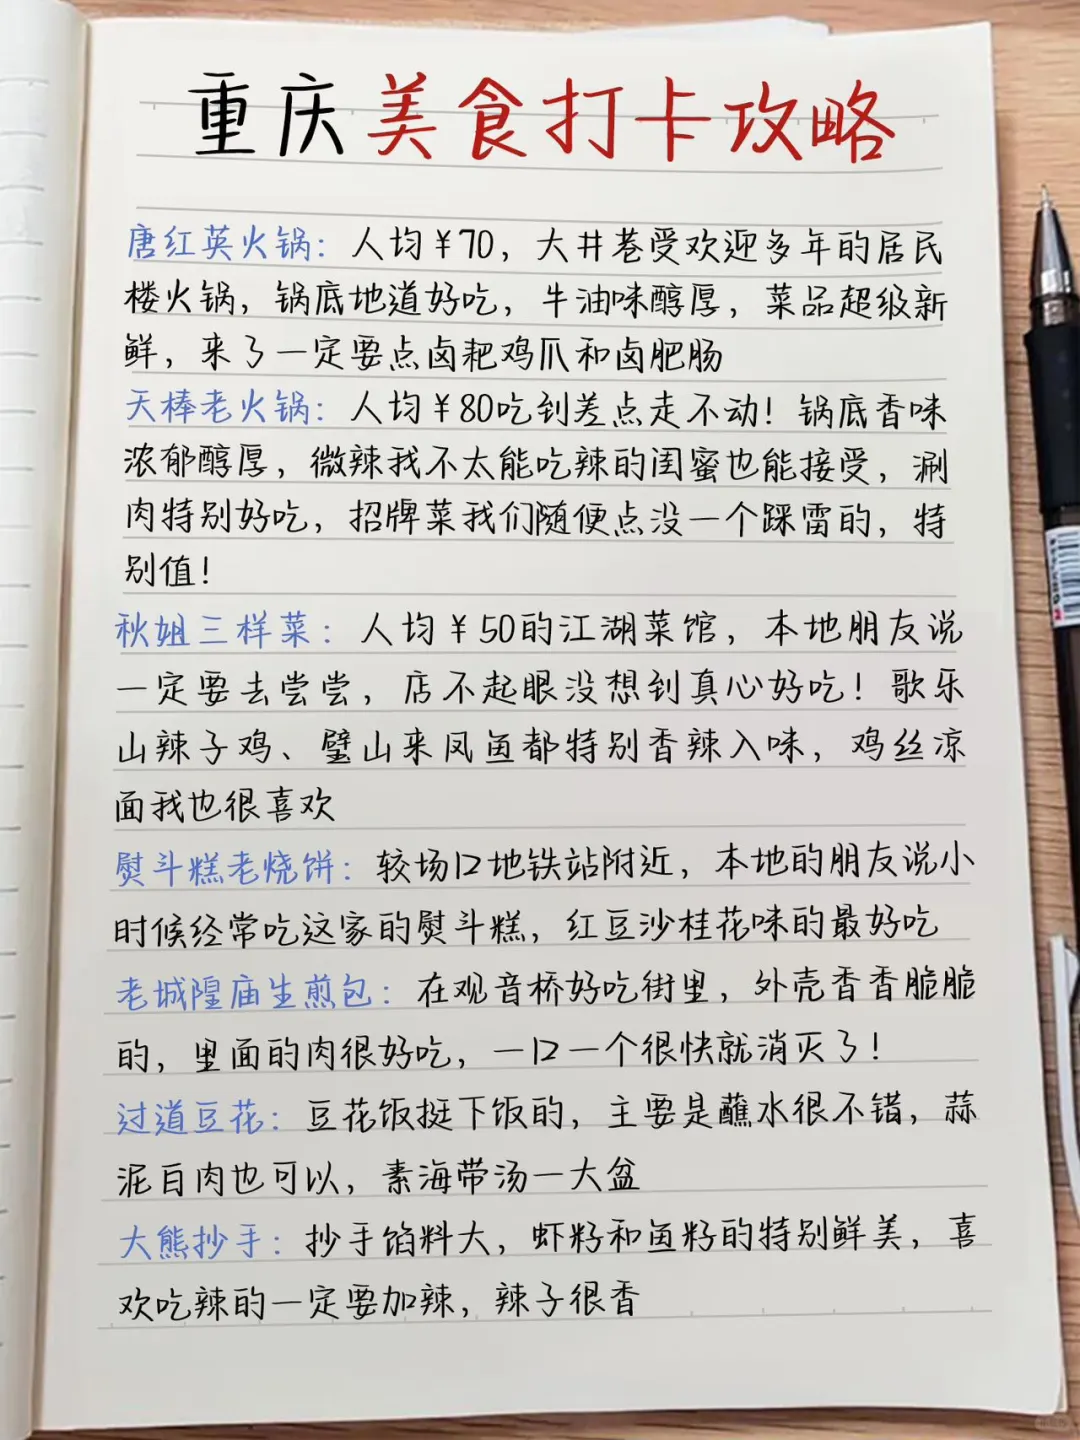 重庆美食打卡攻略
唐红英火锅：人均￥70，大井巷受欢迎多年的居民
楼火锅，锅底地道好吃，牛油味醇厚，菜品超级新
鲜，来了一定要点卤耙鸡爪和卤肥肠
天棒老火锅：人均￥80吃到差点走不动！锅底香味
浓郁醇厚，微辣我不太能吃辣的闺蜜也能接受，涮
肉特别好吃，招牌菜我们随便点没一个踩雷的，特
别值！
秋姐三样菜：人均￥50的江湖菜馆，本地朋友说
一定要去尝尝，店不起眼没想到真心好吃！歌乐
山辣子鸡、璧山来凤鱼都特别香辣入味，鸡丝凉
面我也很喜欢
熨斗糕老烧饼：较场口地铁站附近，本地的朋友说小
时候经常吃这家的熨斗糕，红豆沙桂花味的最好吃
老城隍庙生煎包：在观音桥好吃街里，外壳香香脆脆
的，里面的肉很好吃，一口一个很快就消灭了！
过道豆花：豆花饭挺下饭的，主要是蘸水很不错，蒜
泥白肉也可以，素海带汤一大盆
大熊抄手：抄手馅料大，虾籽和鱼籽的特别鲜美，喜
欢吃辣的一定要加辣，辣子很香